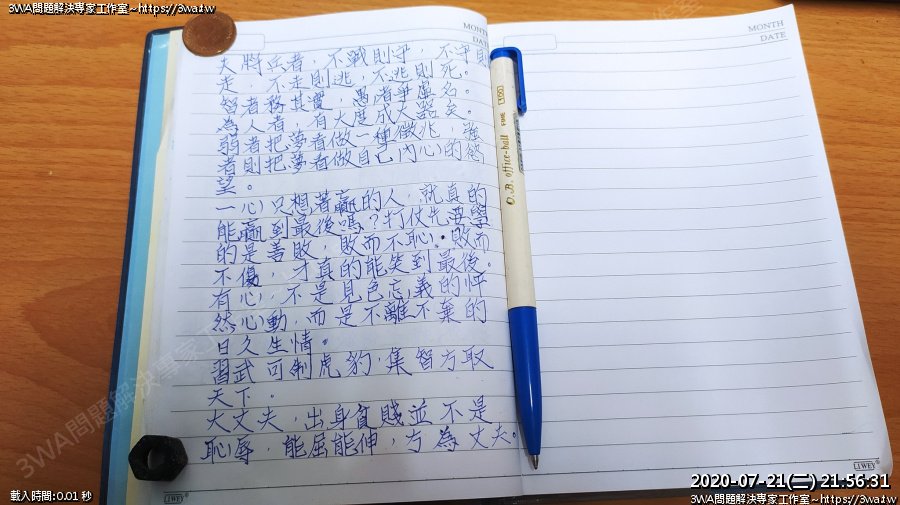 3WA問題解決專家工作室~https://3wa.tw
MONTH
DATE
夫將兵者，不戰則守，不守則
走，不走則逃，不逃則死。
智者務其實，愚者爭虛名。
為人者，有大度成大器矣。
弱者把夢看做一種徵兆，強
者則把夢看做自己內心的慾
望。
一心只想著贏的人，就真的
能贏到最後嗎？打仗先要學
的是善敗，敗而不恥，敗而
不傷，才真的能笑到最後。
有心，不是見色忘義的怦
然心動，而是不離不棄的
日久生情。
習武可制虎豹，集智方取
天下。
大丈夫，出身貧賤並不是
恥辱，能屈能伸，方為丈夫。
LIWEY
MONTH
DATE
O.B. office-ball FINE 100
LIWEY
3WA問題解決專家工作室
載入時間:0.01 秒
2020-07-21(二) 21:56:31
3WA問題解決專家工作室~https://3wa.tw